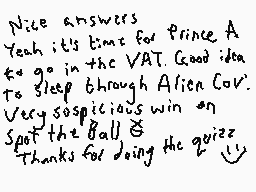 Nice answers
Yeah it's time for Prince A
to go in the VAT. Good idea
to sleep through Alien Cov'.
Very sospitious win on
Spot the Ball
Thanks for doing the quizz